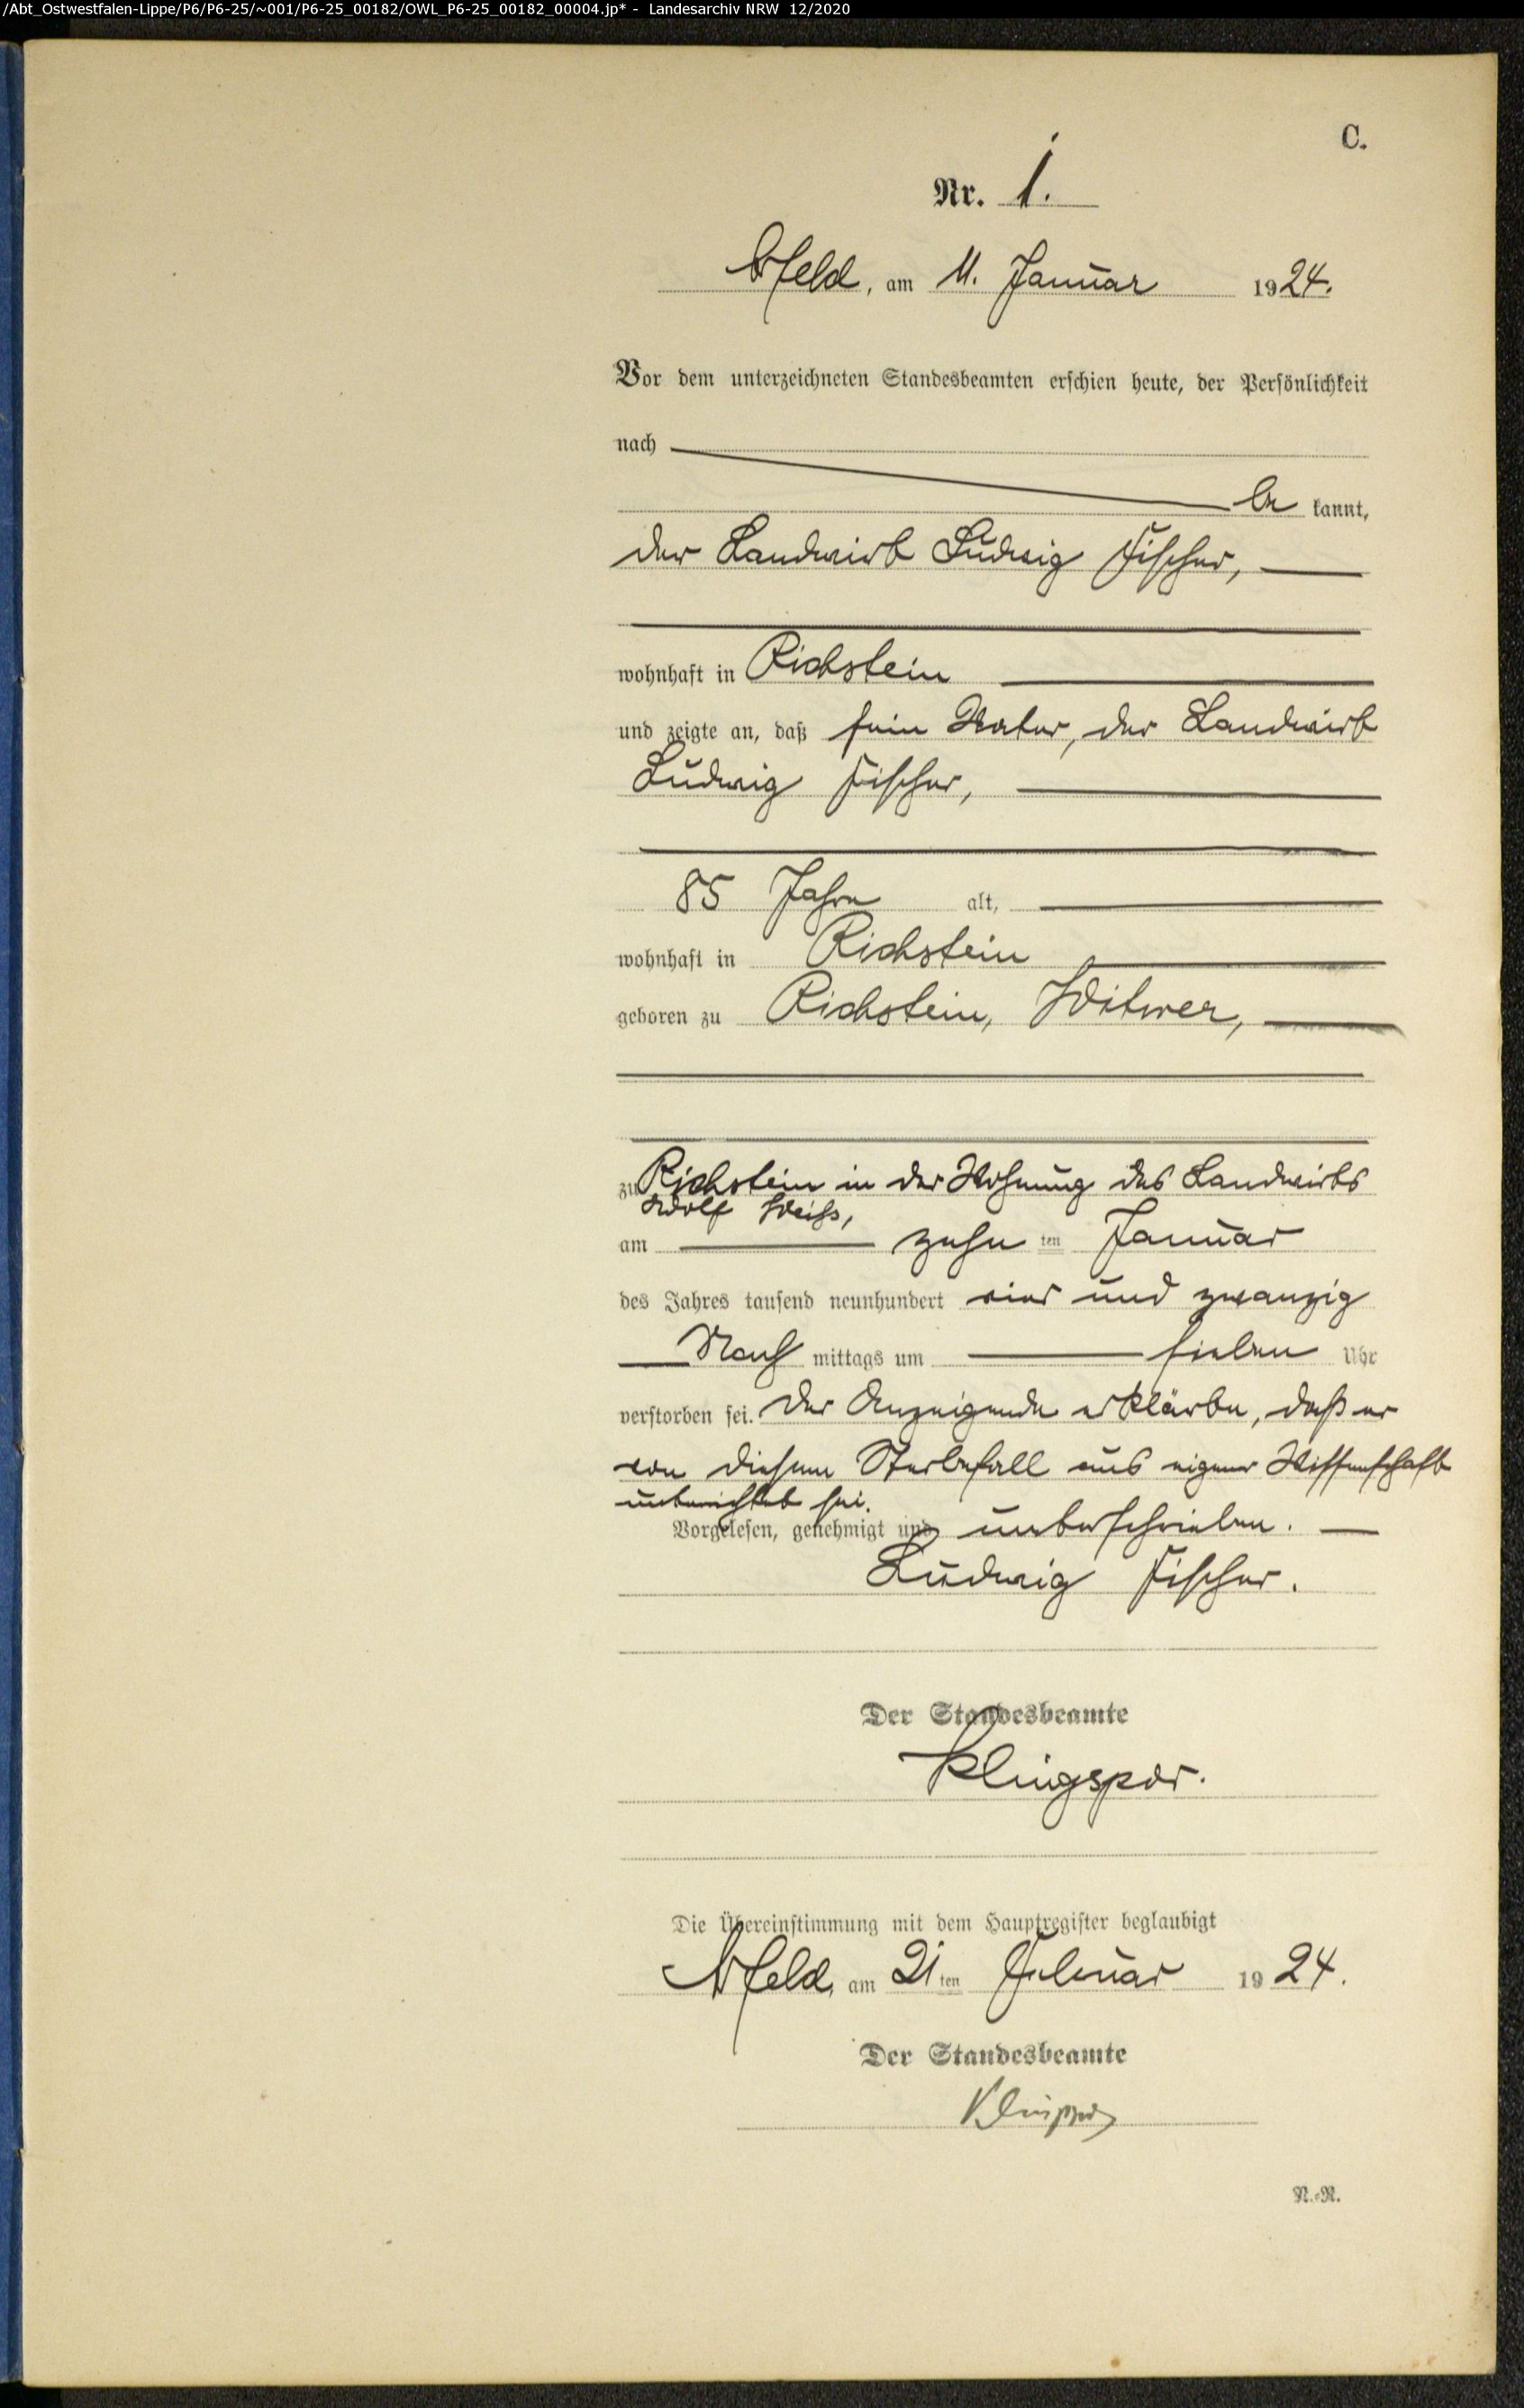 /Abt_Ostwestfalen-Lippe/P6/P6-25/~001/P6-25_00182/OWL_P6-25_00182_00004.jp* - Landesarchiv NRW 12/2020
C.
Nr. 1.
Arfeld, am 11. Januar 1924.
Vor dem unterzeichneten Standesbeamten erschien heute, der Persönlichkeit
nach
be kannt,
der Landwirt Ludwig Fischer,
wohnhaft in Richstein
und zeigte an, daß sein Vater, der Landwirt
Ludwig Fischer,
85 Jahre alt,
wohnhaft in Richstein
geboren zu Richstein, Witwer,
zu Richstein in der Wohnung des Landwirts
Adolf Weiß,
am zehn ten Januar
des Jahres tausend neunhundert vier und zwanzig
Nach mittags um sieben Uhr
verstorben sei. Der Anzeigende erklärte, daß er
von diesem Sterbefall aus eigener Wissenschaft
unterrichtet sei.
Vorgelesen, genehmigt und unterschrieben.
Ludwig Fischer.
Der Standesbeamte
Klingspor.
Die Übereinstimmung mit dem Hauptregister beglaubigt
Arfeld, am 21 ten Februar 1924.
Der Standesbeamte
Klingspor
N.-R.